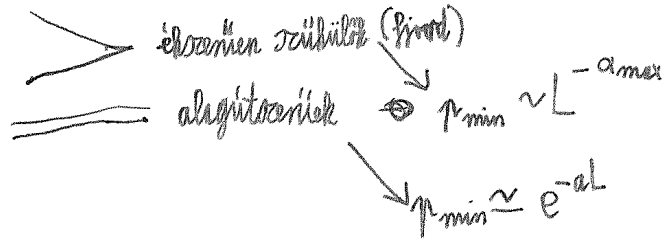 ékszerűen szűkülők (fjord)
alagútszerűek p_min ~ L^{-α_max}
p_min ≃ e^{-aL}